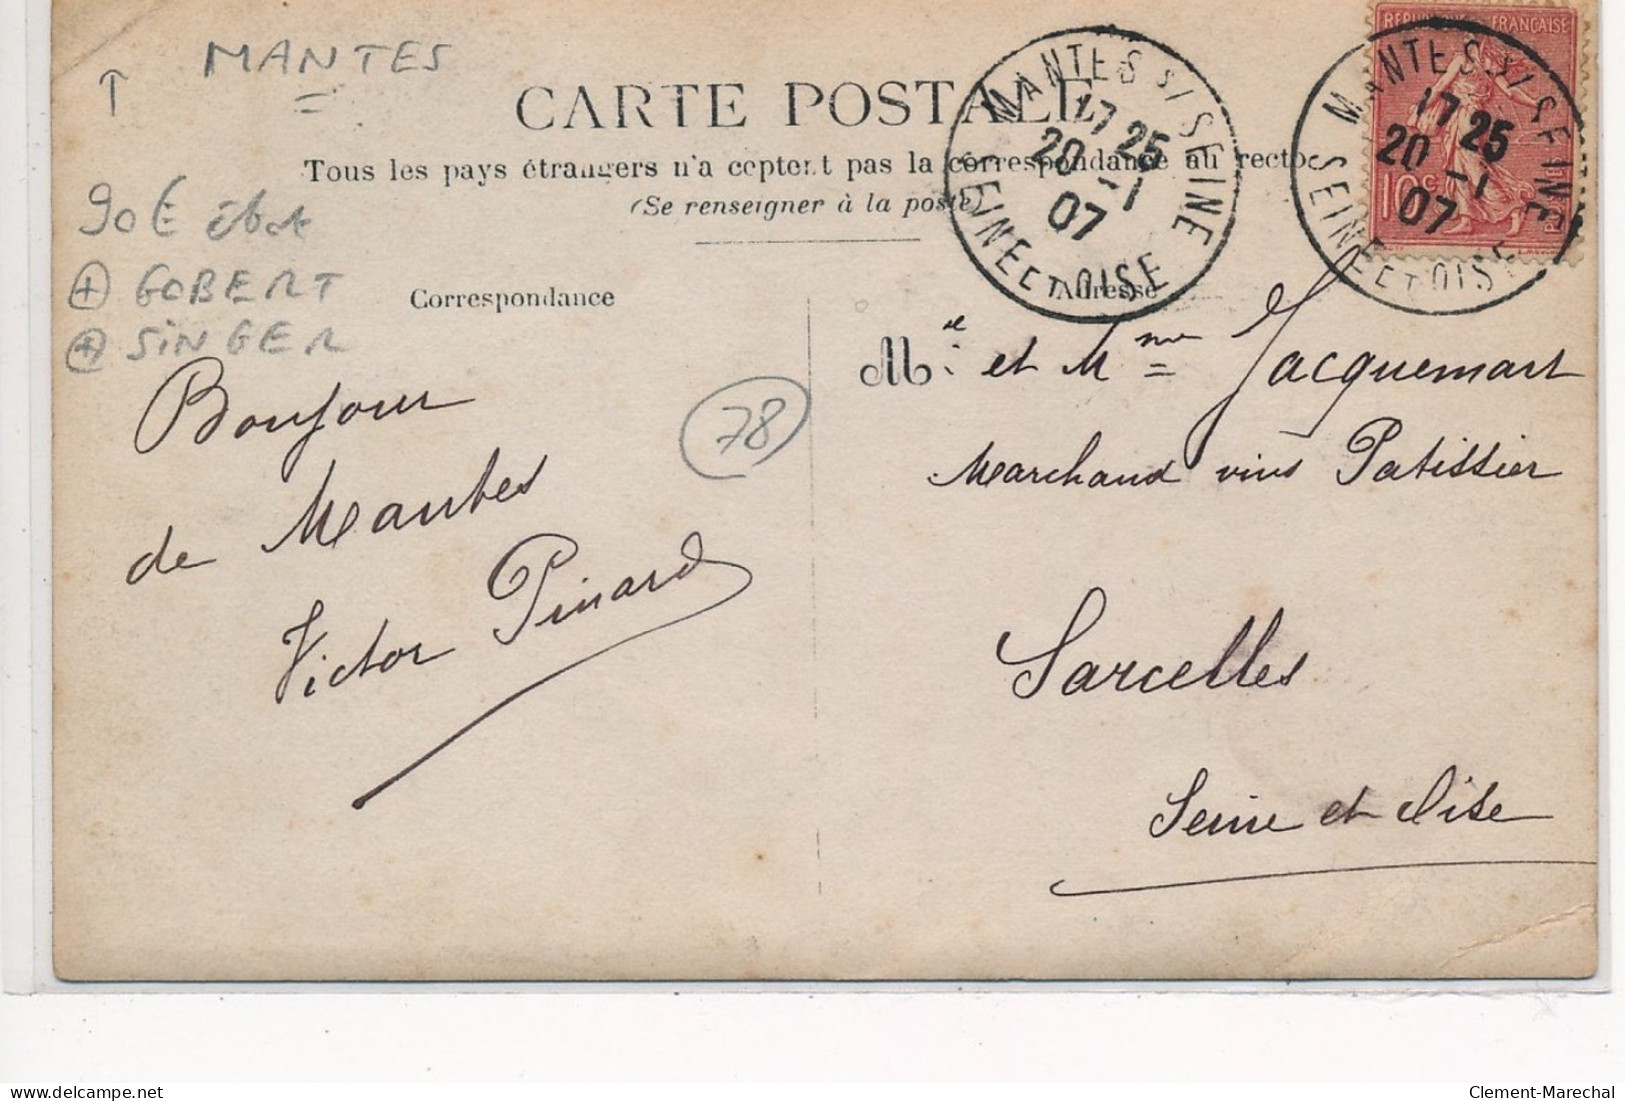 MANTES
CARTE POSTALE
Tous les pays étrangers n'acceptent pas la correspondance au recto
(Se renseigner à la poste)
MANTES S/ SEINE
17 25
20 -1
07
SEINE ET OISE
REPUBLIQUE FRANÇAISE
10c
MANTES S/ SEINE
17 25
20 -1
07
SEINE ET OISE
90€
+ GOBERT
+ SINGER
78
Correspondance
Adresse
Bonjour
de Mantes
Victor Pinard
M. et Mme Jacquemart
Marchand vins Patissier
Sarcelles
Seine et Oise
delcampe.net
Clement-Marechal